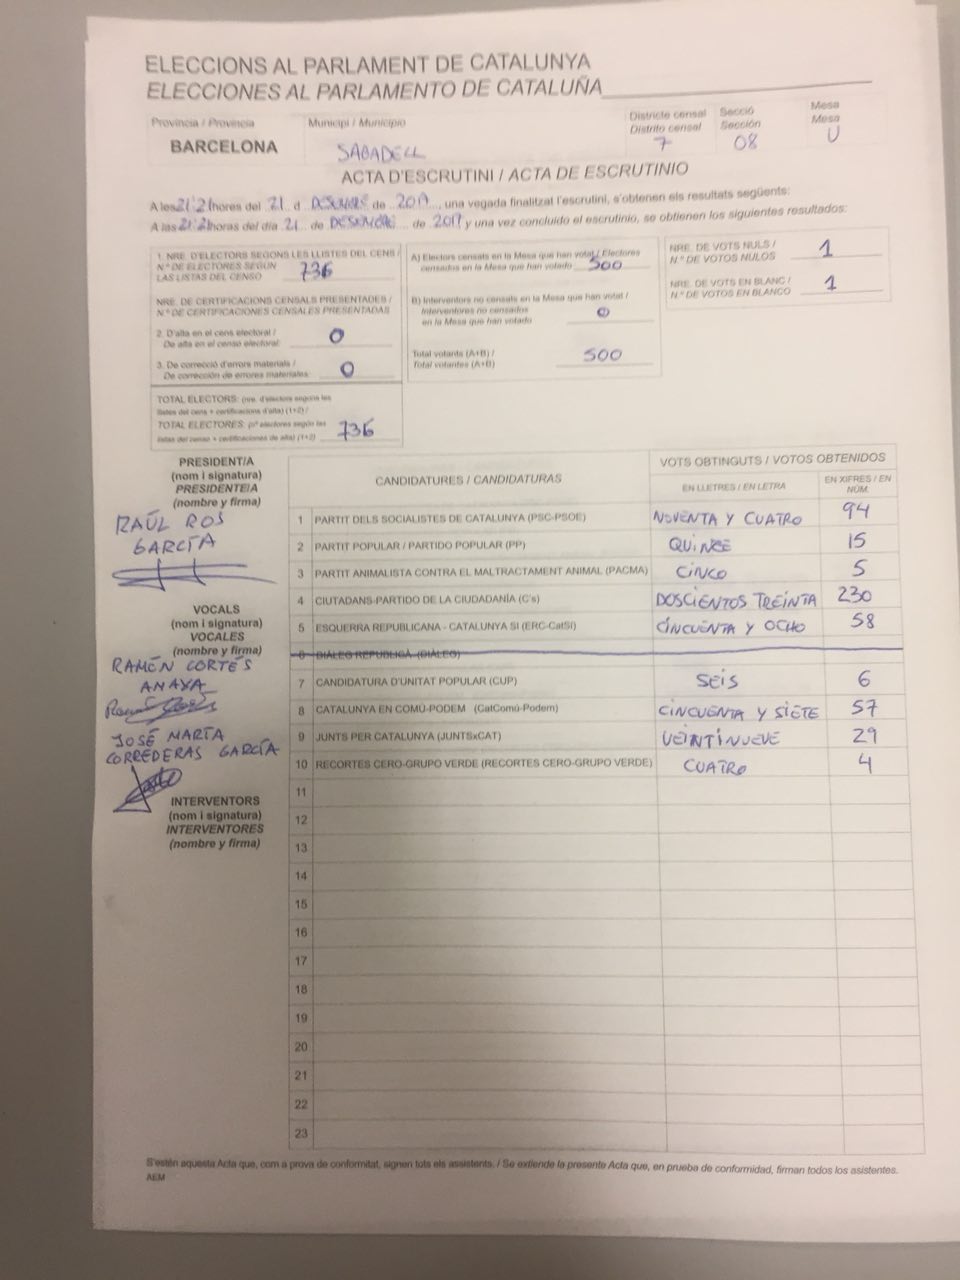 ELECCIONS AL PARLAMENT DE CATALUNYA
ELECCIONES AL PARLAMENTO DE CATALUÑA
Província / Provincia
BARCELONA
Municipi / Municipio
SABADELL
Districte censal
Distrito censal
7
Secció
Sección
08
Mesa
Mesa
U
ACTA D'ESCRUTINI / ACTA DE ESCRUTINIO
A les 21:21 hores del 21 d de 2017, una vegada finalitzat l'escrutini, s'obtenen els resultats següents:
A las 21:21 horas del día 21 de de 2017 y una vez concluido el escrutinio, se obtienen los siguientes resultados:
1. NRE. D'ELECTORS SEGONS LES LLISTES DEL CENS /
N.º DE ELECTORES SEGÚN
LAS LISTAS DEL CENSO 736
NRE. DE CERTIFICACIONS CENSALS PRESENTADES /
N.º DE CERTIFICACIONES CENSALES PRESENTADAS
2. D'alta en el cens electoral /
De alta en el censo electoral: 0
3. De correcció d'errors materials /
De corrección de errores materiales: 0
TOTAL ELECTORS: (nre. d'electors segons les
llistes del cens + certificacions d'alta) (1+2) /
TOTAL ELECTORES: (nº electores según las
listas del censo + certificaciones de alta) (1+2) 736
A) Electors censats en la Mesa que han votat / Electores
censados en la Mesa que han votado 500
B) Interventors no censats en la Mesa que han votat /
Interventores no censados
en la Mesa que han votado 0
Total votants (A+B) /
Total votantes (A+B) 500
NRE. DE VOTS NULS /
N.º DE VOTOS NULOS 1
NRE. DE VOTS EN BLANC /
N.º DE VOTOS EN BLANCO 1
PRESIDENT/A
(nom i signatura)
PRESIDENTE/A
(nombre y firma)
RAÚL ROS
GARCÍA
VOCALS
(nom i signatura)
VOCALES
(nombre y firma)
RAMÓN CORTÉS
ANAYA
JOSÉ MARÍA
CORREDERAS GARCÍA
INTERVENTORS
(nom i signatura)
INTERVENTORES
(nombre y firma)
CANDIDATURES / CANDIDATURAS
VOTS OBTINGUTS / VOTOS OBTENIDOS
EN LLETRES / EN LETRA
EN XIFRES / EN
NÚM.
1 PARTIT DELS SOCIALISTES DE CATALUNYA (PSC-PSOE) NOVENTA Y CUATRO 94
2 PARTIT POPULAR / PARTIDO POPULAR (PP) QUINCE 15
3 PARTIT ANIMALISTA CONTRA EL MALTRACTAMENT ANIMAL (PACMA) CINCO 5
4 CIUTADANS-PARTIDO DE LA CIUDADANÍA (C's) DOSCIENTOS TREINTA 230
5 ESQUERRA REPUBLICANA - CATALUNYA SI (ERC-CatSí) CINCUENTA Y OCHO 58
6 DIÀLEG REPUBLICÀ (DIÀLEG)
7 CANDIDATURA D'UNITAT POPULAR (CUP) SEIS 6
8 CATALUNYA EN COMÚ-PODEM (CatComú-Podem) CINCUENTA Y SIETE 57
9 JUNTS PER CATALUNYA (JUNTSxCAT) VEINTINUEVE 29
10 RECORTES CERO-GRUPO VERDE (RECORTES CERO-GRUPO VERDE) CUATRO 4
11
12
13
14
15
16
17
18
19
20
21
22
23
S'estén aquesta Acta que, com a prova de conformitat, signen tots els assistents. / Se extiende la presente Acta que, en prueba de conformidad, firman todos los asistentes.
AEM